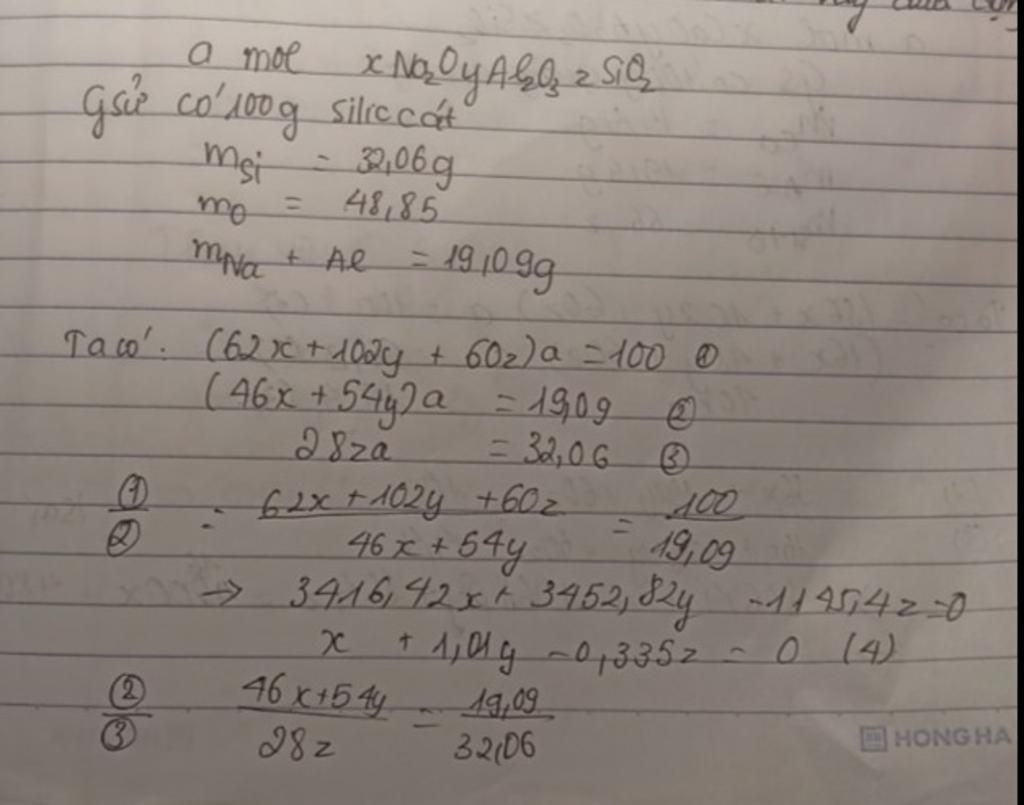 a mol xNa₂OyAl₂O₃zSiO₂
Gsử có 100g siliccát
mSi = 32,06g
mO = 48,85
mNa + Al = 19,09g
Ta có: (62x+102y + 60z)a = 100 ①
(46x + 54y)a = 19,09 ②
28za = 32,06 ③
①/② = (62x+102y+60z)/(46x+54y) = 100/19,09
→ 3416,42x + 3452,82y - 1145,4z=0
x + 1,01y - 0,335z = 0 (4)
②/③ (46x+54y)/28z = 19,09/32,06
HONG HA